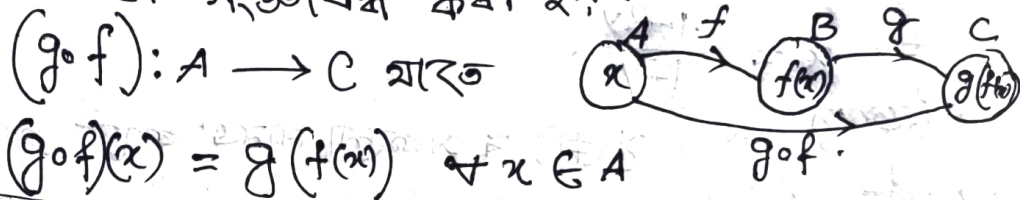 (g∘f): A → C যাতে
(g∘f)(x) = g(f(x)) ∀ x ∈ A
A f B g C
x f(x) g(f(x))
g∘f.